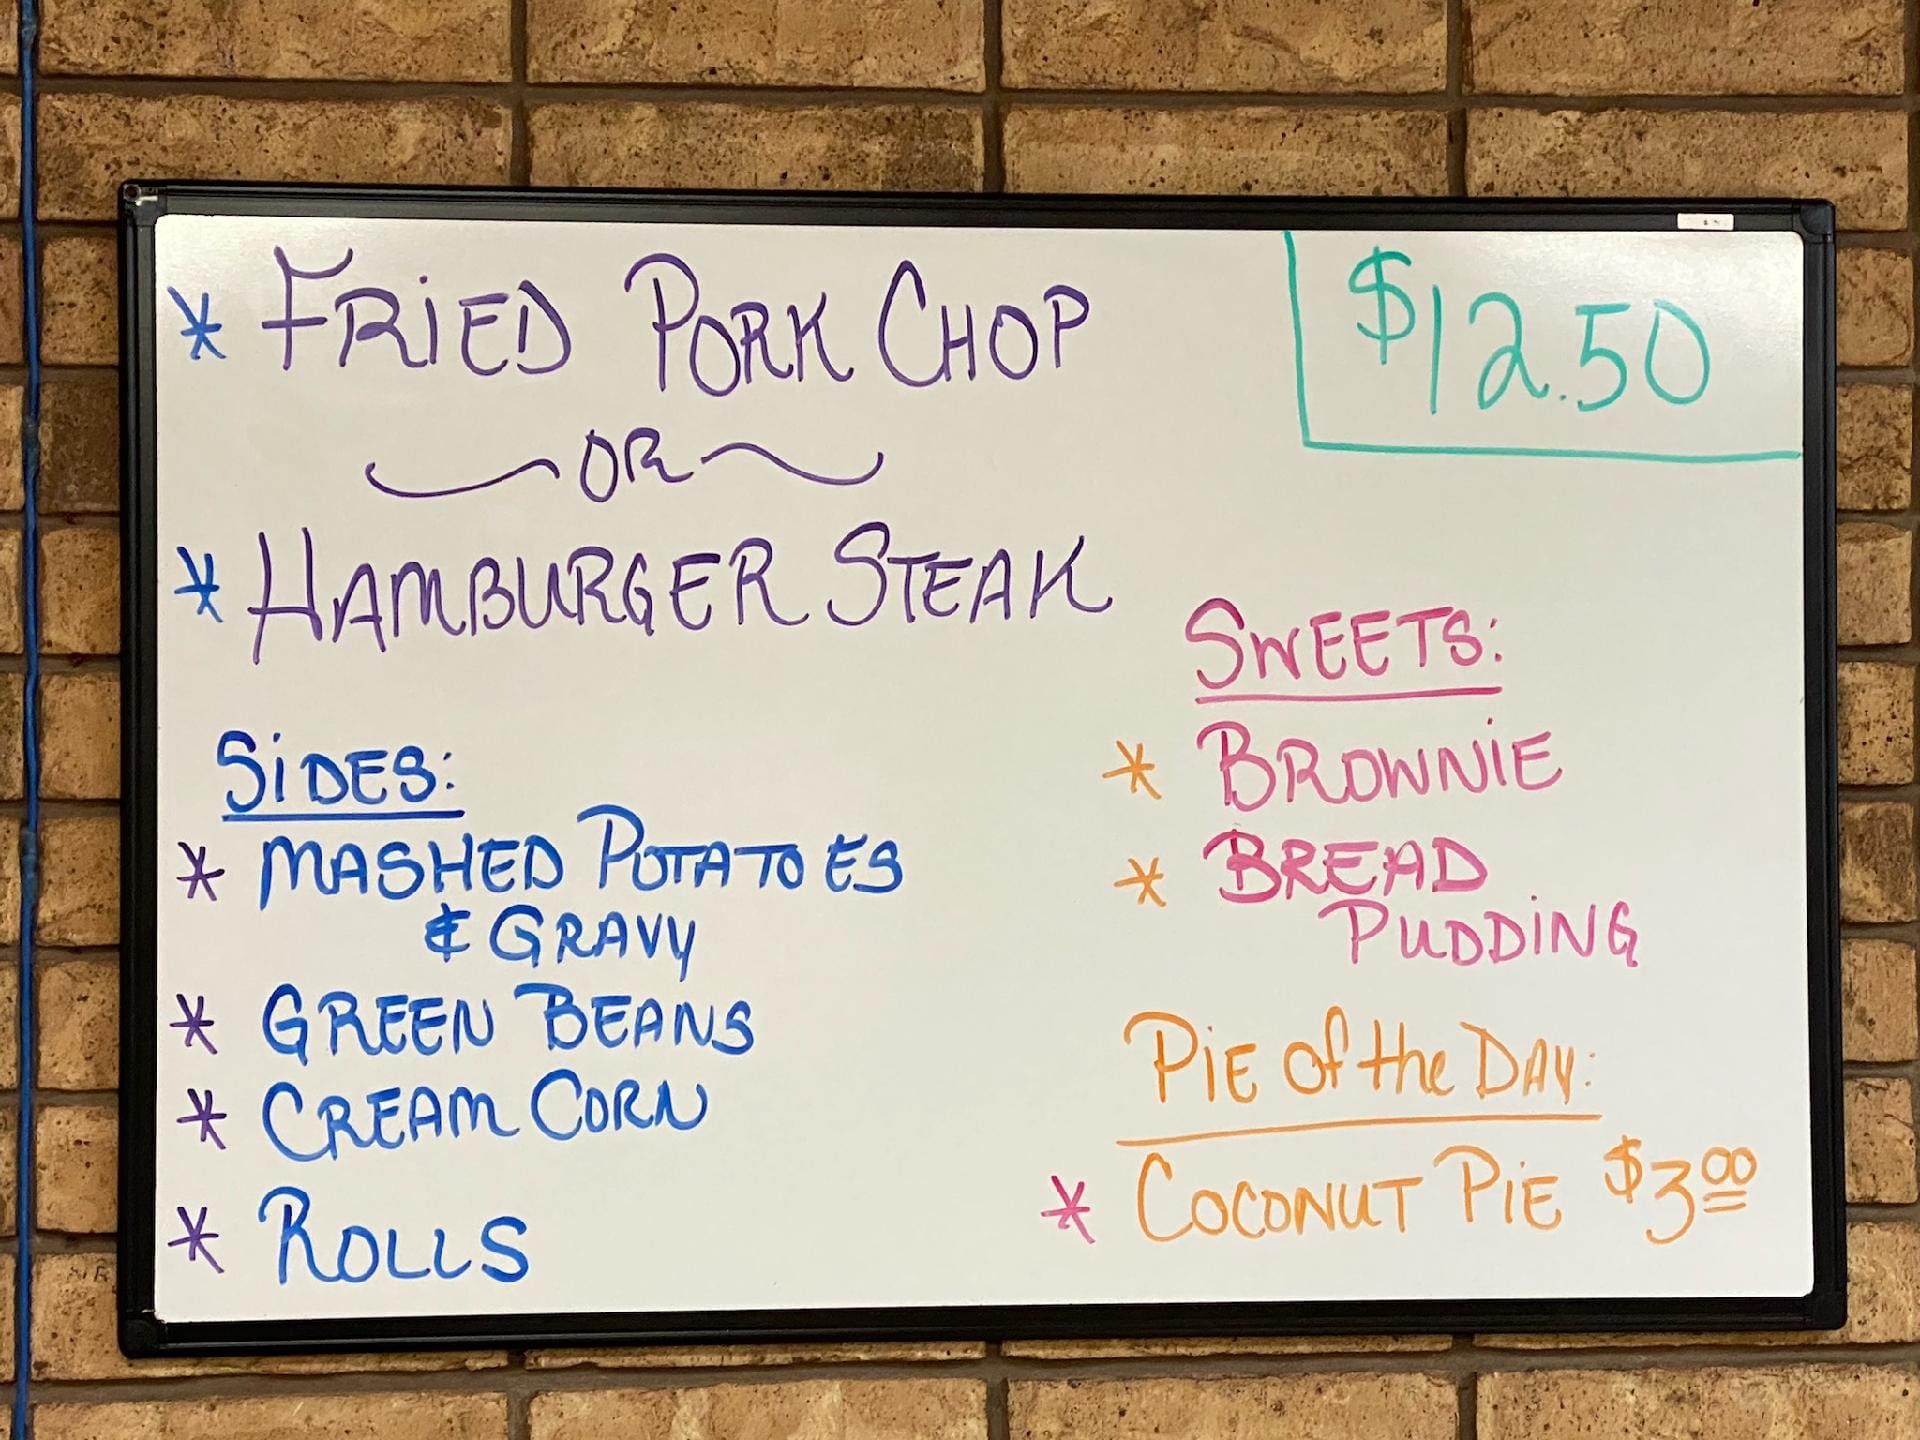 * FRIED PORK CHOP
OR
* HAMBURGER STEAK
$12.50
SIDES:
* MASHED POTATOES
& GRAVY
* GREEN BEANS
* CREAM CORN
* ROLLS
SWEETS:
* BROWNIE
* BREAD
PUDDING
PIE of the DAY:
* COCONUT PIE $3.00